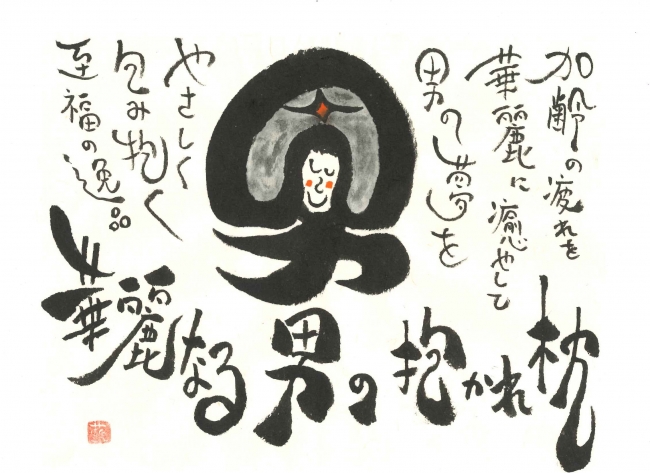 加齢の疲れを
華麗に癒やして
男の夢を
やさしく
包み抱く
至福の逸品
華麗なる男の抱かれ枕